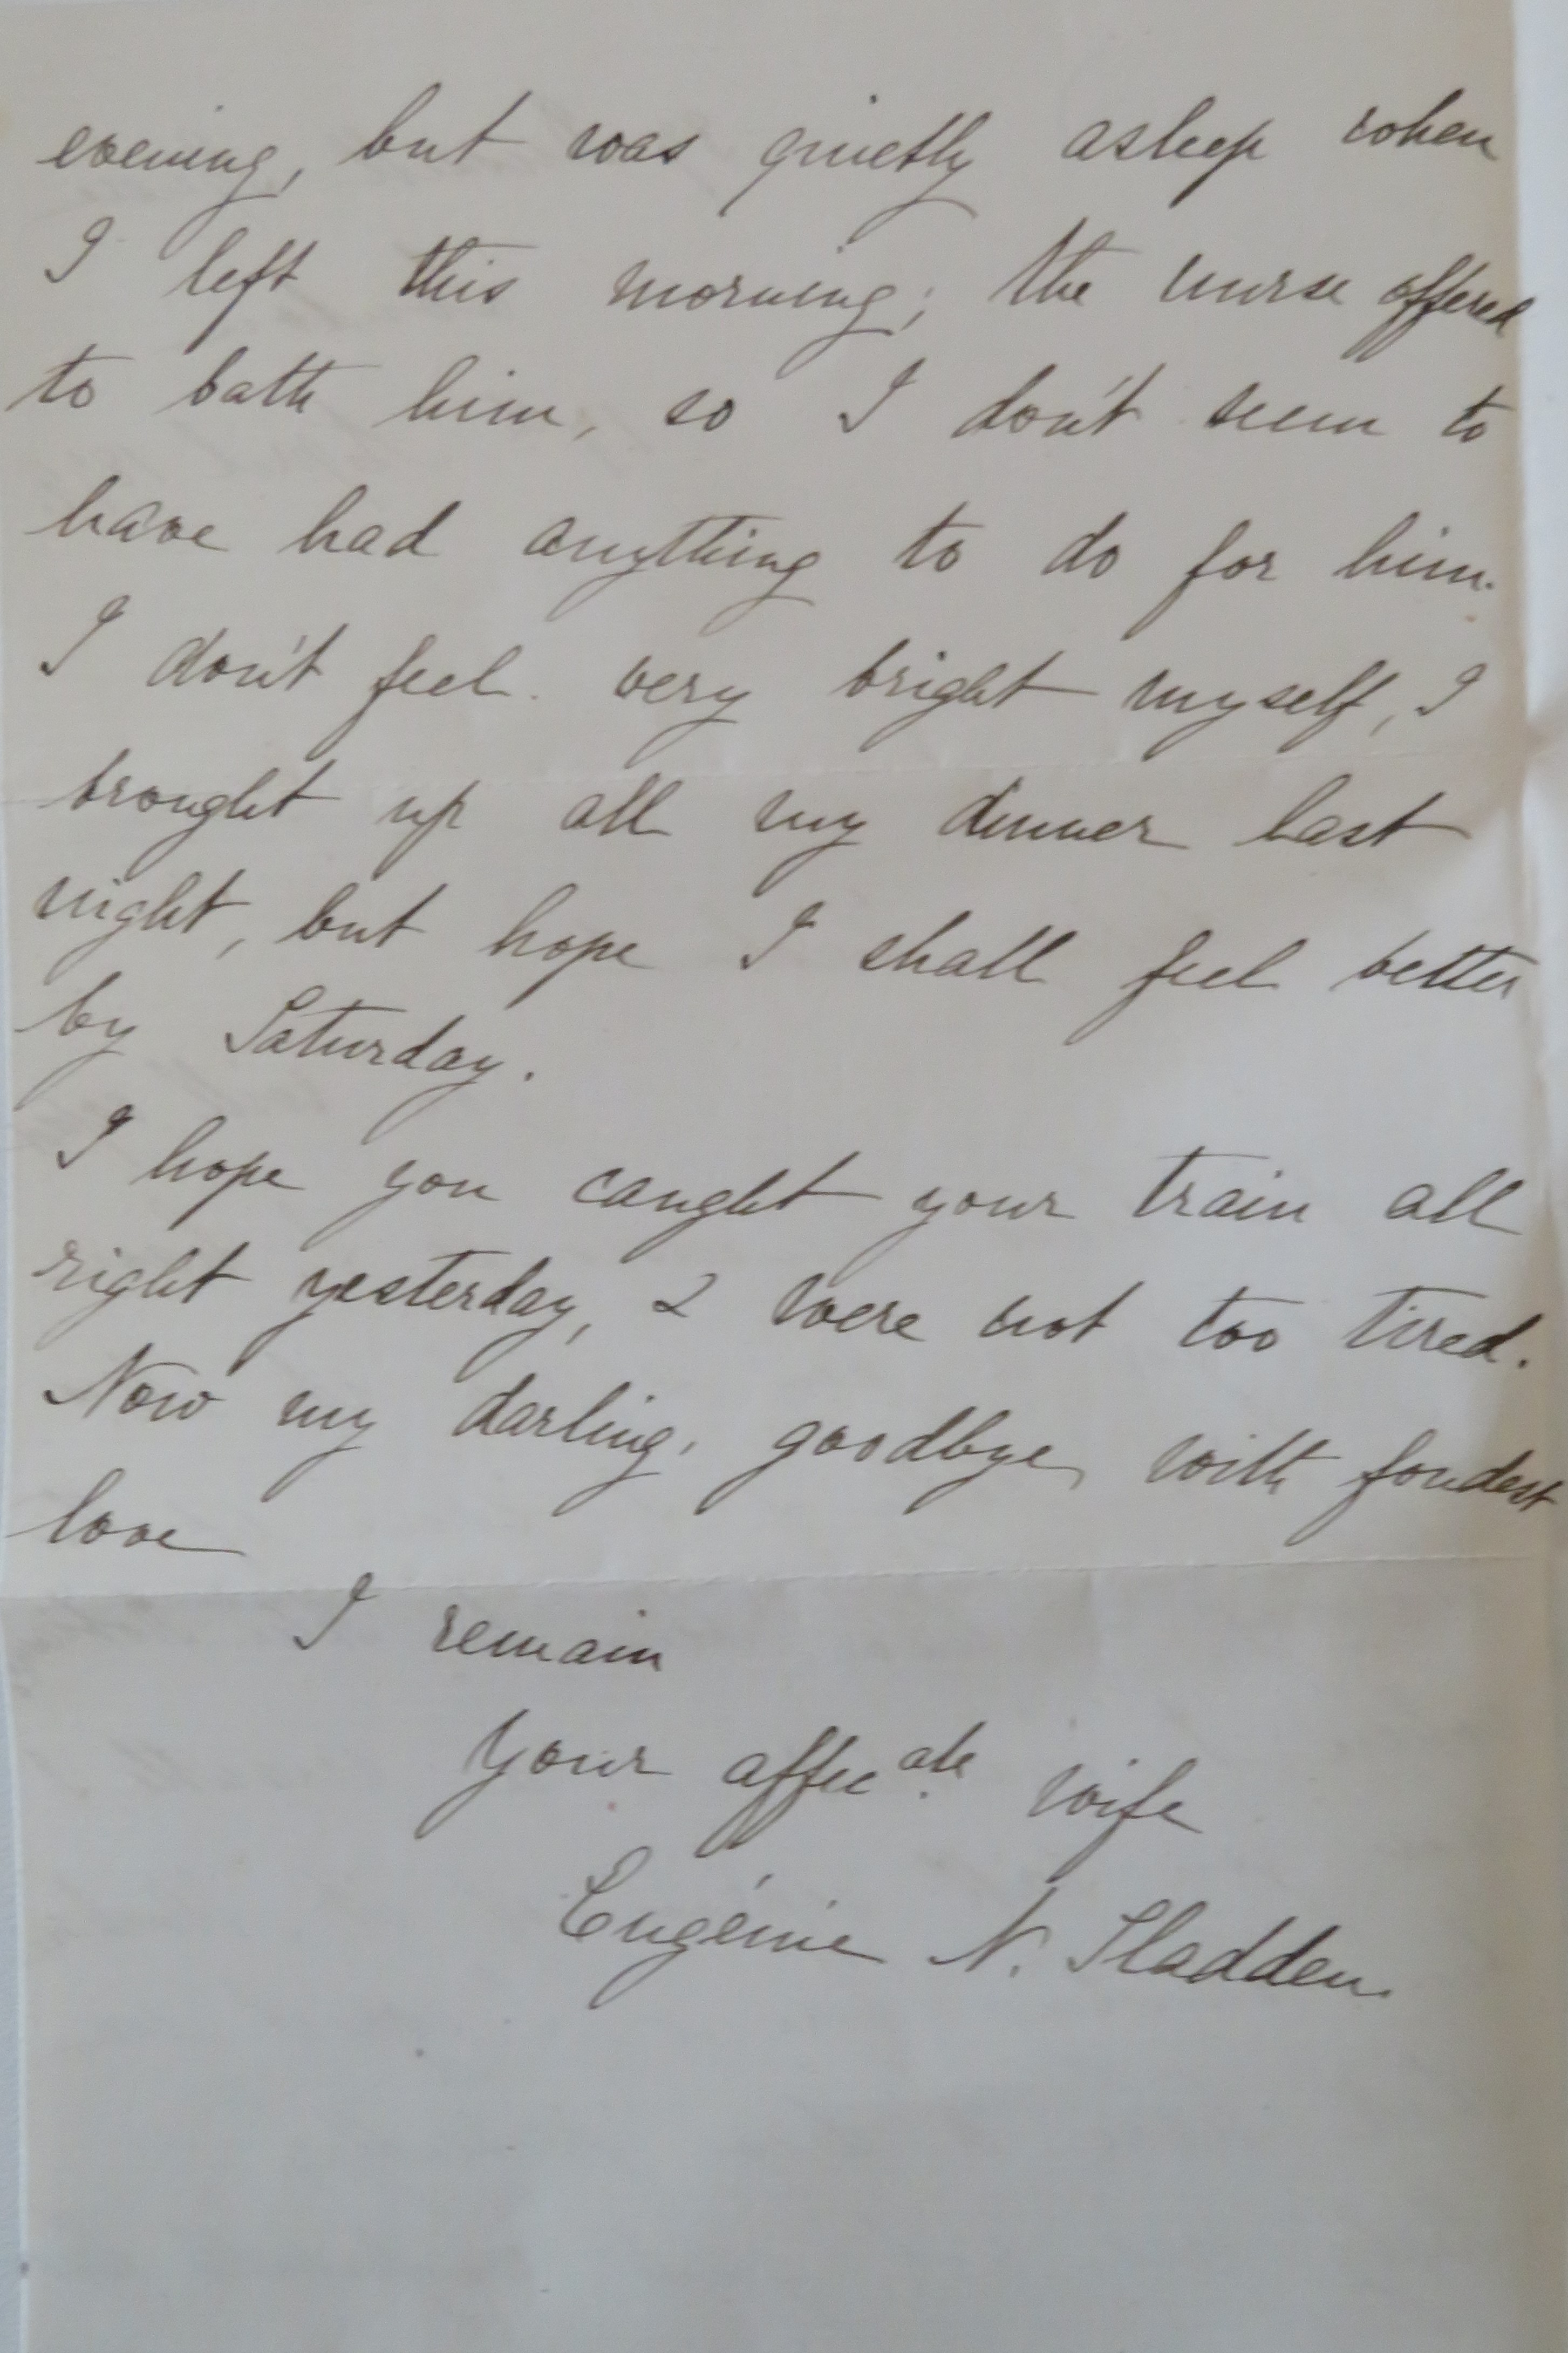 evening, but was quietly asleep when
I left this morning; the nurse offered
to bath him, so I don't seem to
have had anything to do for him.
I don't feel very bright myself, I
brought up all my dinner last
night, but hope I shall feel better
by Saturday.
I hope you caught your train all
right yesterday, & were not too tired.
Now my darling, goodbye, with fondest
love
I remain
Your affec.ate wife
Eugénie N. Sladden.